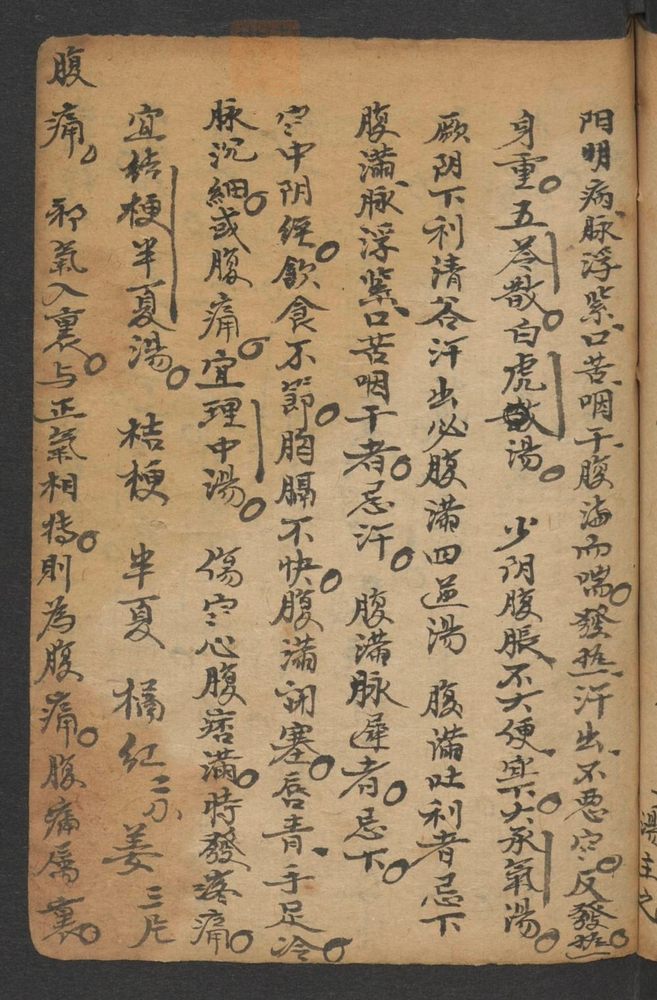 阳明病脉浮紧口苦咽干腹满而喘。發热汗出不悪寒。反發热。
身重。五苓散。白虎湯。 少阴腹脹不大便実下大承氣湯。
厥阴下利清谷汗出必腹满四逆湯 腹满吐利者忌下
腹满脉浮紧口苦咽干者。忌汗。 腹满脉遲者。忌下。
寒中阴經。飲食不節。胸膈不快。腹满闭塞。唇青手足冷。
脉沉細。或腹痛。宜理中湯。 傷寒心腹痞满。時發疼痛。
宜桔梗半夏湯。 桔梗 半夏 橘红二分 姜三片
腹痛。 邪氣入裏。与正氣相搏。則為腹痛。腹痛属裏。
湯主之